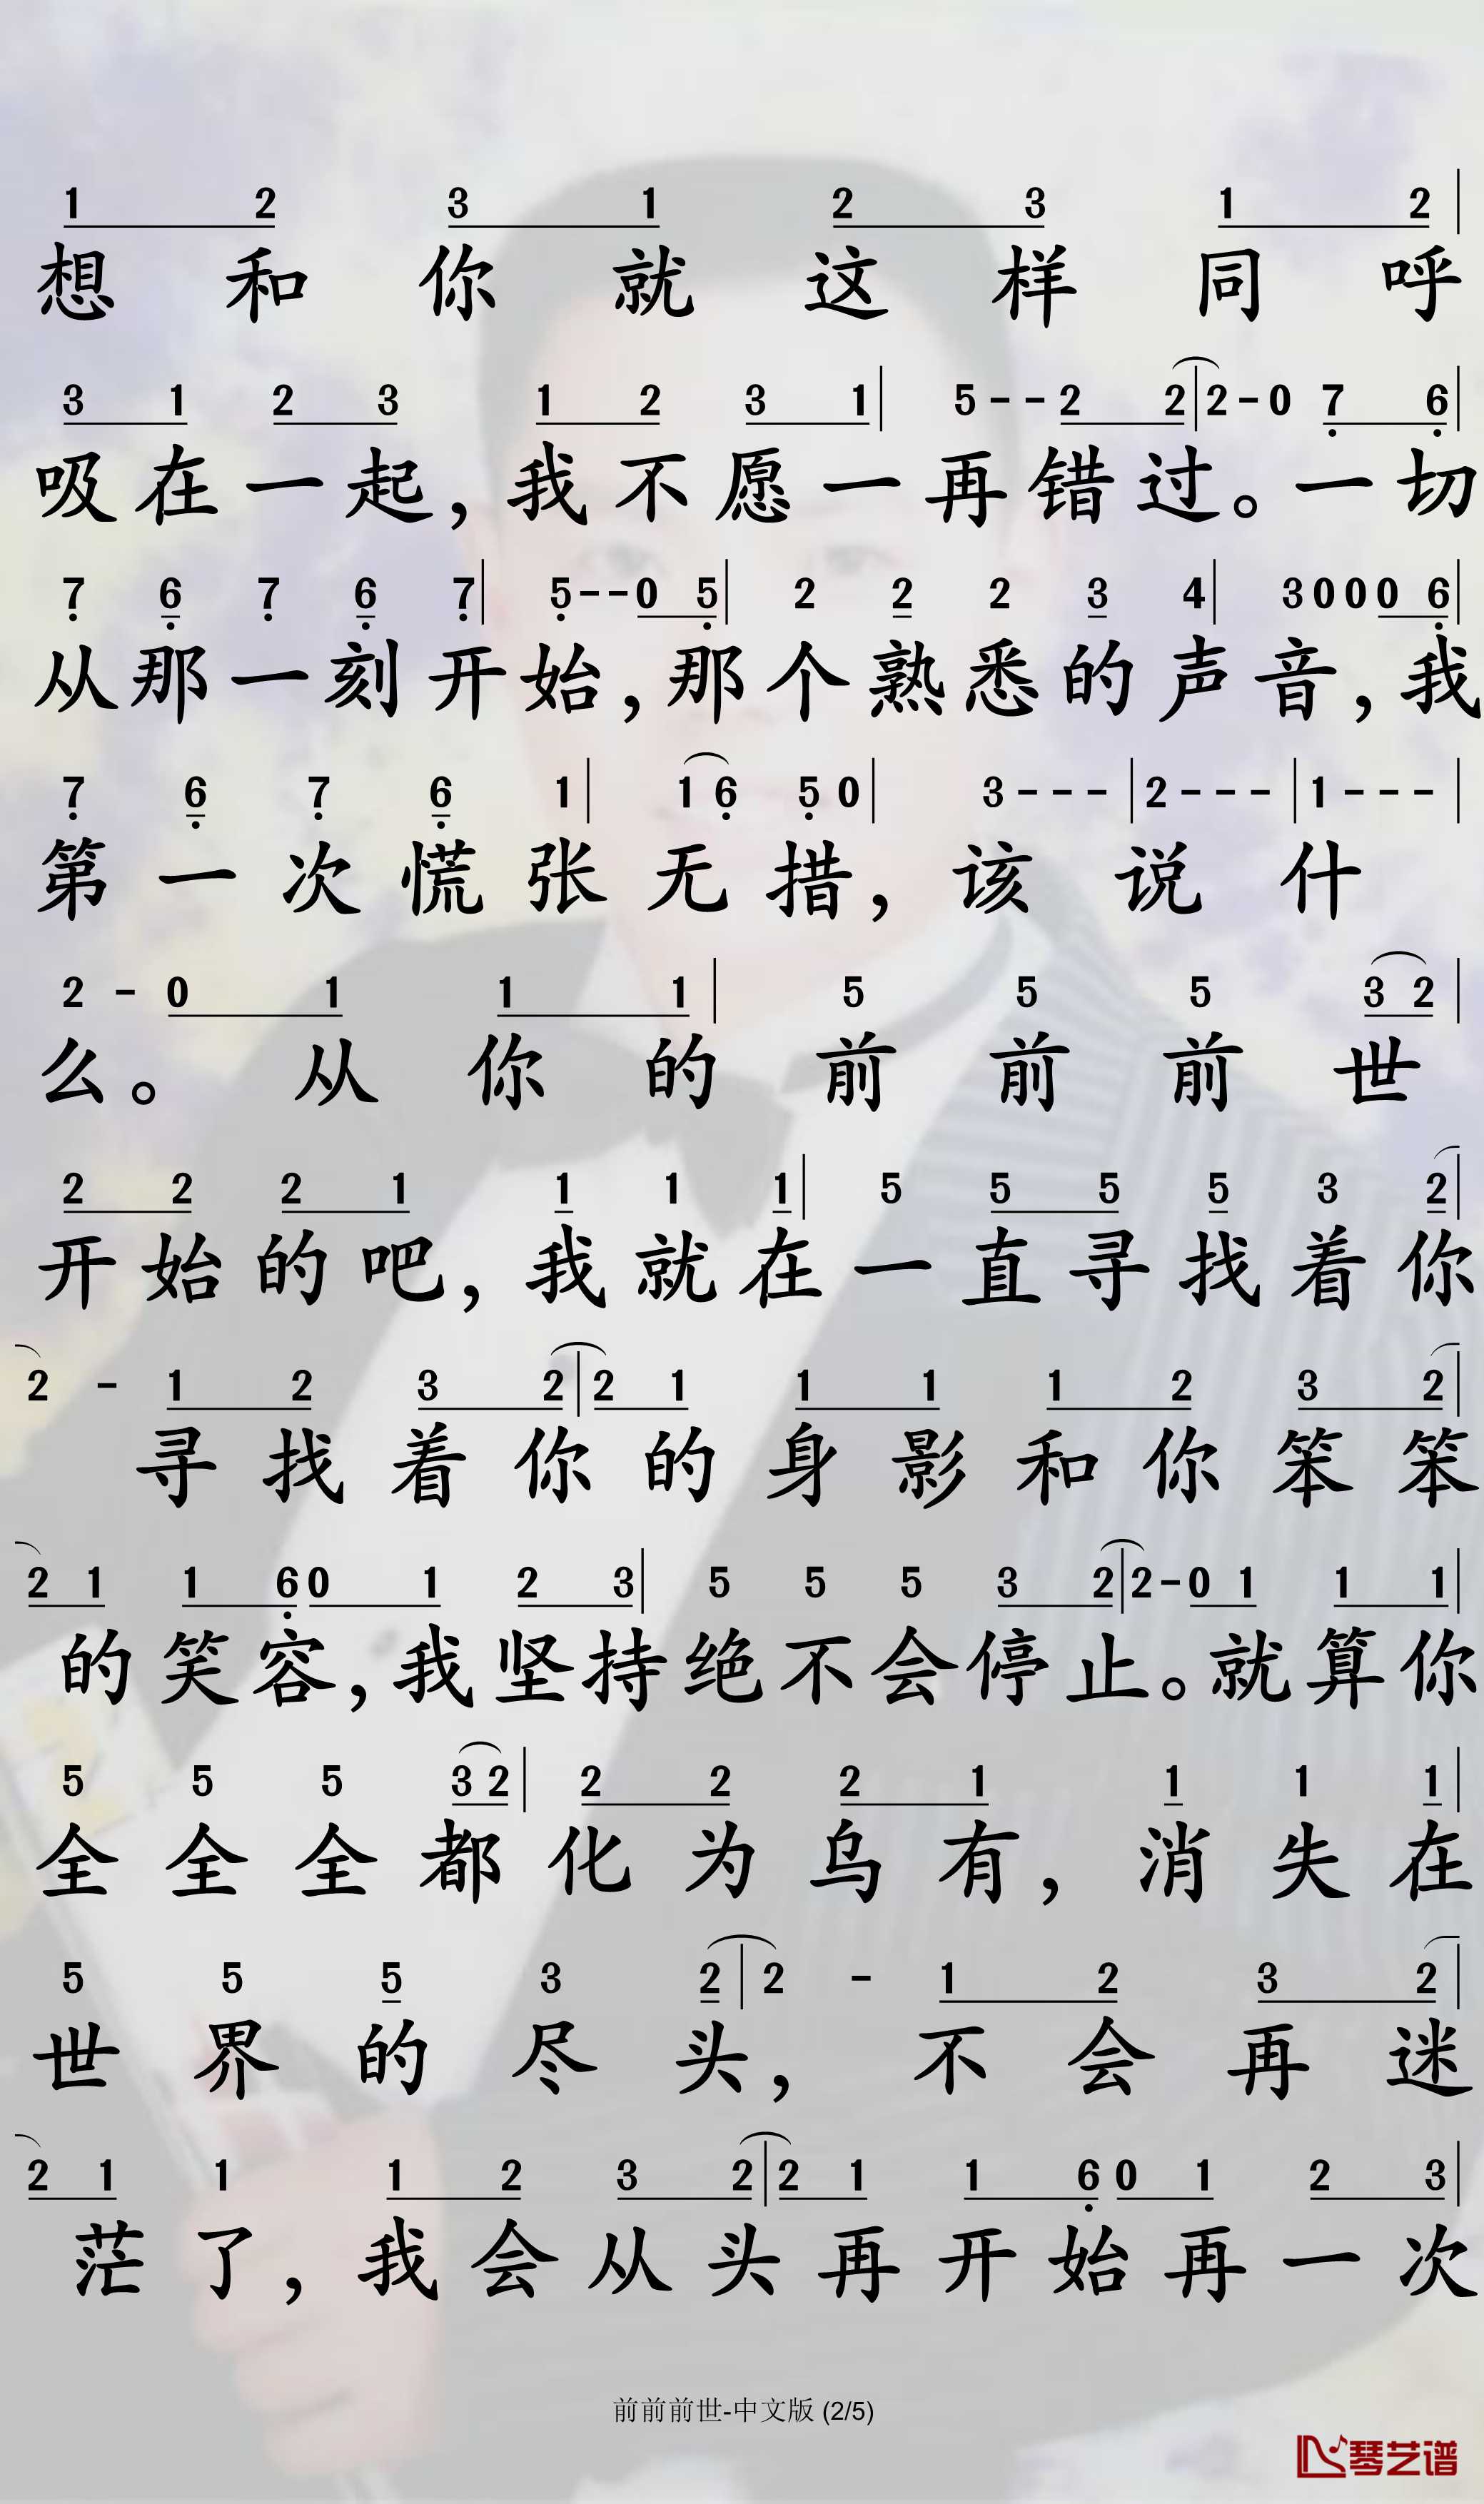 1 2 3 1 2 3 1 2
想和你就这样同呼
3 1 2 3 1 2 3 1 5 - - 2 2 2 - 0 7 6
吸在一起，我不愿一再错过。一切
7 6 7 6 7 5 - - 0 5 2 2 2 3 4 3 0 0 0 6
从那一刻开始，那个熟悉的声音，我
7 6 7 6 1 1 6 5 0 3 - - - 2 - - - 1 - - -
第一次慌张无措，该说什
2 - 0 1 1 1 5 5 5 3 2
么。从你的前前前世
2 2 2 1 1 1 1 5 5 5 5 3 2
开始的吧，我就在一直寻找着你
2 - 1 2 3 2 2 1 1 1 1 2 3 2
寻找着你的身影和你笨笨
2 1 1 6 0 1 2 3 5 5 5 3 2 2 - 0 1 1 1
的笑容，我坚持绝不会停止。就算你
5 5 5 3 2 2 2 2 1 1 1 1
全全全都化为乌有，消失在
5 5 5 3 2 2 - 1 2 3 2
世界的尽头，不会再迷
2 1 1 1 2 3 2 2 1 1 6 0 1 2 3
茫了，我会从头再开始再一次
前前前世-中文版 (2/5)
琴艺谱